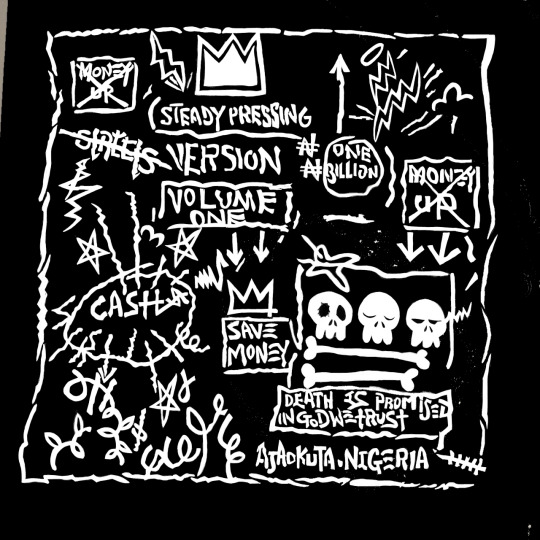 MONEY
UP
STEADY PRESSING
STREETS VERSION
VOLUME
ONE
₦ ONE
₦ BILLION
MONEY
UP
CASH
SAVE
MONEY
DEATH IS PROMISED
IN GOD WE TRUST
AJAOKUTA. NIGERIA